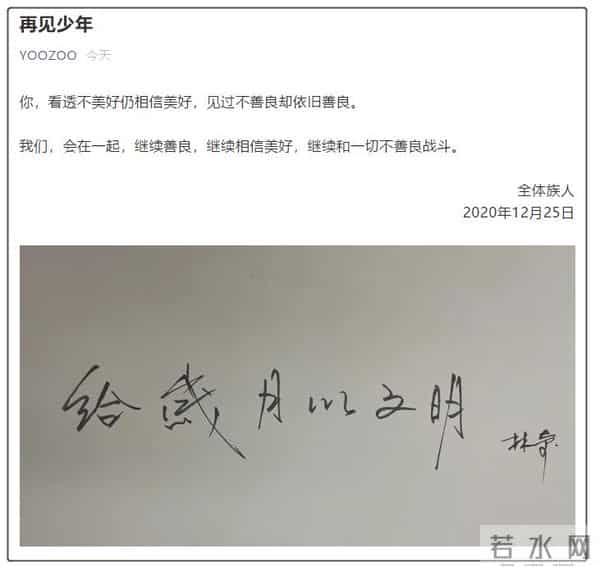 再见少年
YOOZOO 今天
你，看透不美好仍相信美好，见过不善良却依旧善良。
我们，会在一起，继续善良，继续相信美好，继续和一切不善良战斗。
全体族人
2020年12月25日
给岁月以文明
林奇
若水网